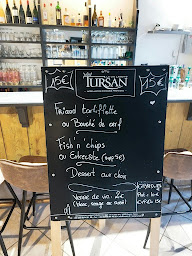 15€ TURSAN 15€
Friand tartiflette
ou Bouché de cerf
Fish'n'chips
ou Entrecôte (sup 5€)
Dessert aux choix
Verre de vin 2€
(blanc, rouge ou rosé)